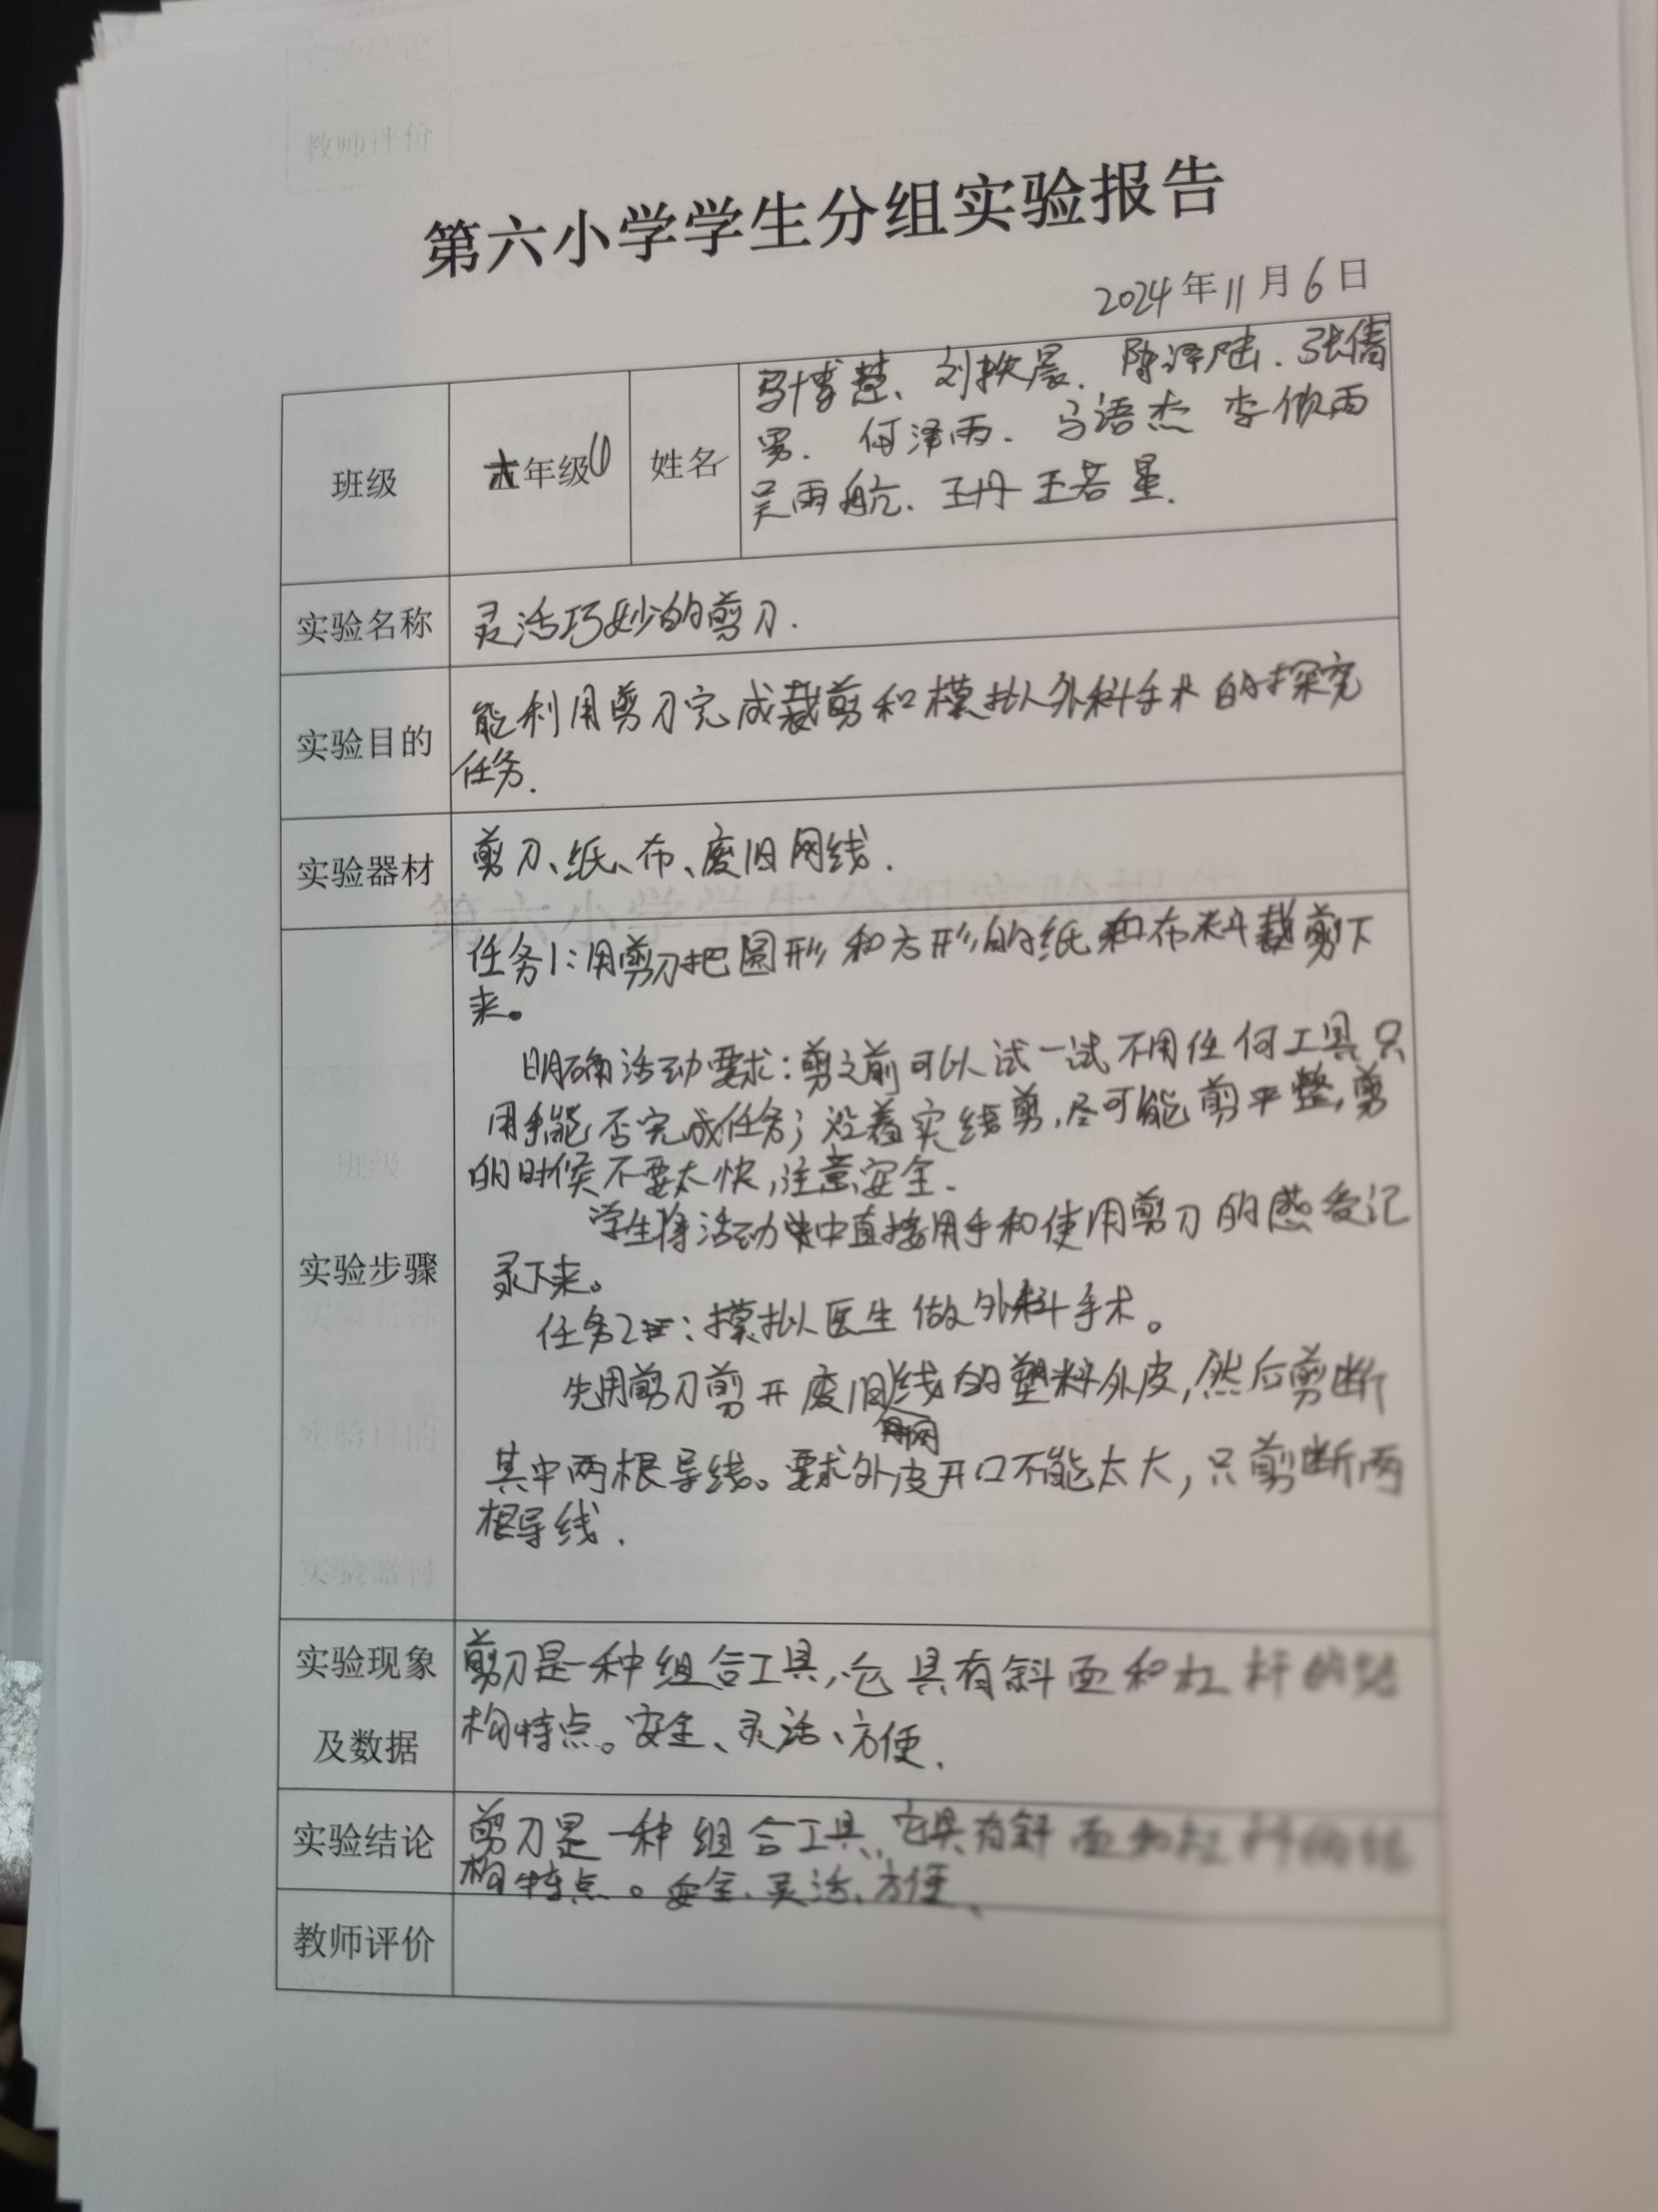 第六小学学生分组实验报告
2024年11月6日
班级
六年级
姓名
马博慧、刘轶晨、陈泽陆、张倩
男、何泽雨、马语杰 李欣雨
吴雨航、王丹 王若星.
实验名称
灵活巧妙的剪刀.
实验目的
能利用剪刀完成裁剪和模拟外科手术的探究
任务.
实验器材
剪刀、纸、布、废旧网线.
实验步骤
任务1:用剪刀把圆形和方形的纸和布料裁剪下
来。
明确活动要求:剪之前可以试一试不用任何工具只
用手能否完成任务;沿着实线剪,尽可能剪平整,剪
的时候不要太快,注意安全.
学生将活动中直接用手和使用剪刀的感受记
录下来。
任务2:模拟医生做外科手术。
先用剪刀剪开废旧网线的塑料外皮,然后剪断
其中两根导线。要求外皮开口不能太大,只剪断两
根导线.
实验现象
及数据
剪刀是一种组合工具,它具有斜面和杠杆的结
构特点。安全、灵活、方便.
实验结论
剪刀是一种组合工具,它具有斜面和杠杆的结
构特点。安全、灵活、方便、
教师评价